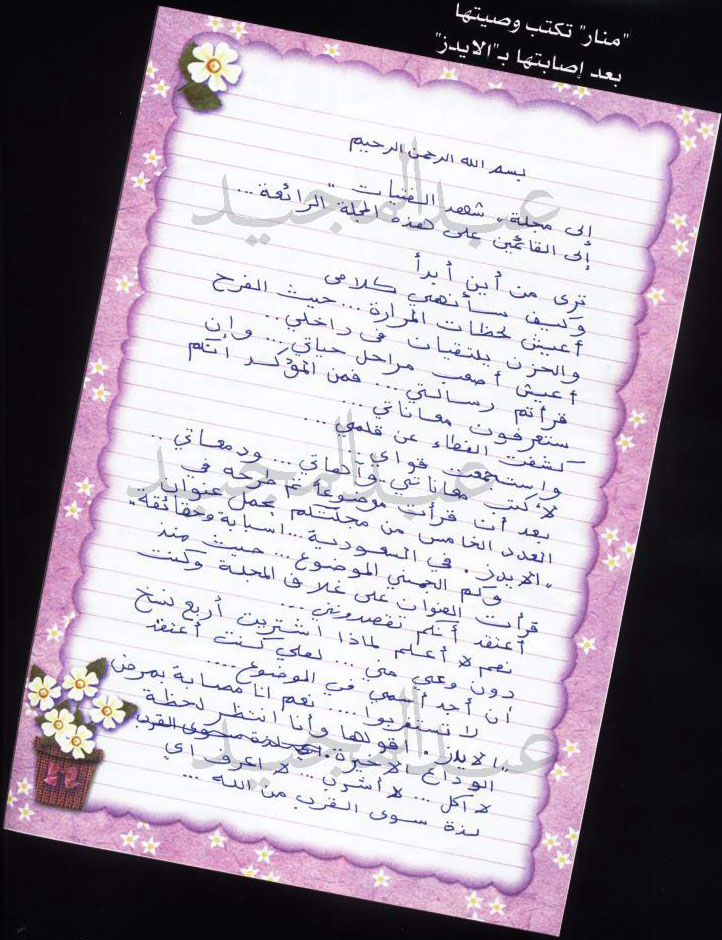 "منار" تكتب وصيتها
بعد إصابتها بـ"الايدز"
بسم الله الرحمن الرحيم
إلى مجلة شهد الفتيات "
إلى القائمين على هذه المجلة الرائعة...
ترى من أين أبدأ
وكيف سأنهي كلامي
أعيش لحظات المرارة... حيث الفرح
والحزن يلتقيان في داخلي..
أعيش أصعب مراحل حياتي... وإن
قرأتم رسالتي... فمن المؤكد أنكم
ستعرفون معاناتي...
كشفت الغطاء عن قلمي...
واستجمعت قواي...
لأكتب معاناتي وآهاتي... ودمعاتي..
بعد أن قرأت موضوعا تم طرحه في
العدد الخامس من مجلتكم يحمل عنوان
"الايدز. في السعودية... اسبابة وحقائقه"
وكم الموضوع... حيث منذ
قرأت العنوان على غلاف المجلة وكنت
أعتقد أنكم تقصدونني...
نعم لا أعلم لماذا اشتريت أربع نسخ
دون وعي مني... لعلي كنت أعتقد
أن أجد أسمي في الموضوع...
لا تستغربوا... نعم انا مصابة بمرض
"الايدز. أقولها وأنا انتظر لحظة
الوداع الاخيرة. سوى القرب
لا اكل... لا أشرب... لا اعرف اي
لذة سوى القرب من الله...
عبدالمجيد
عبدالمجيد
عبدالمجيد